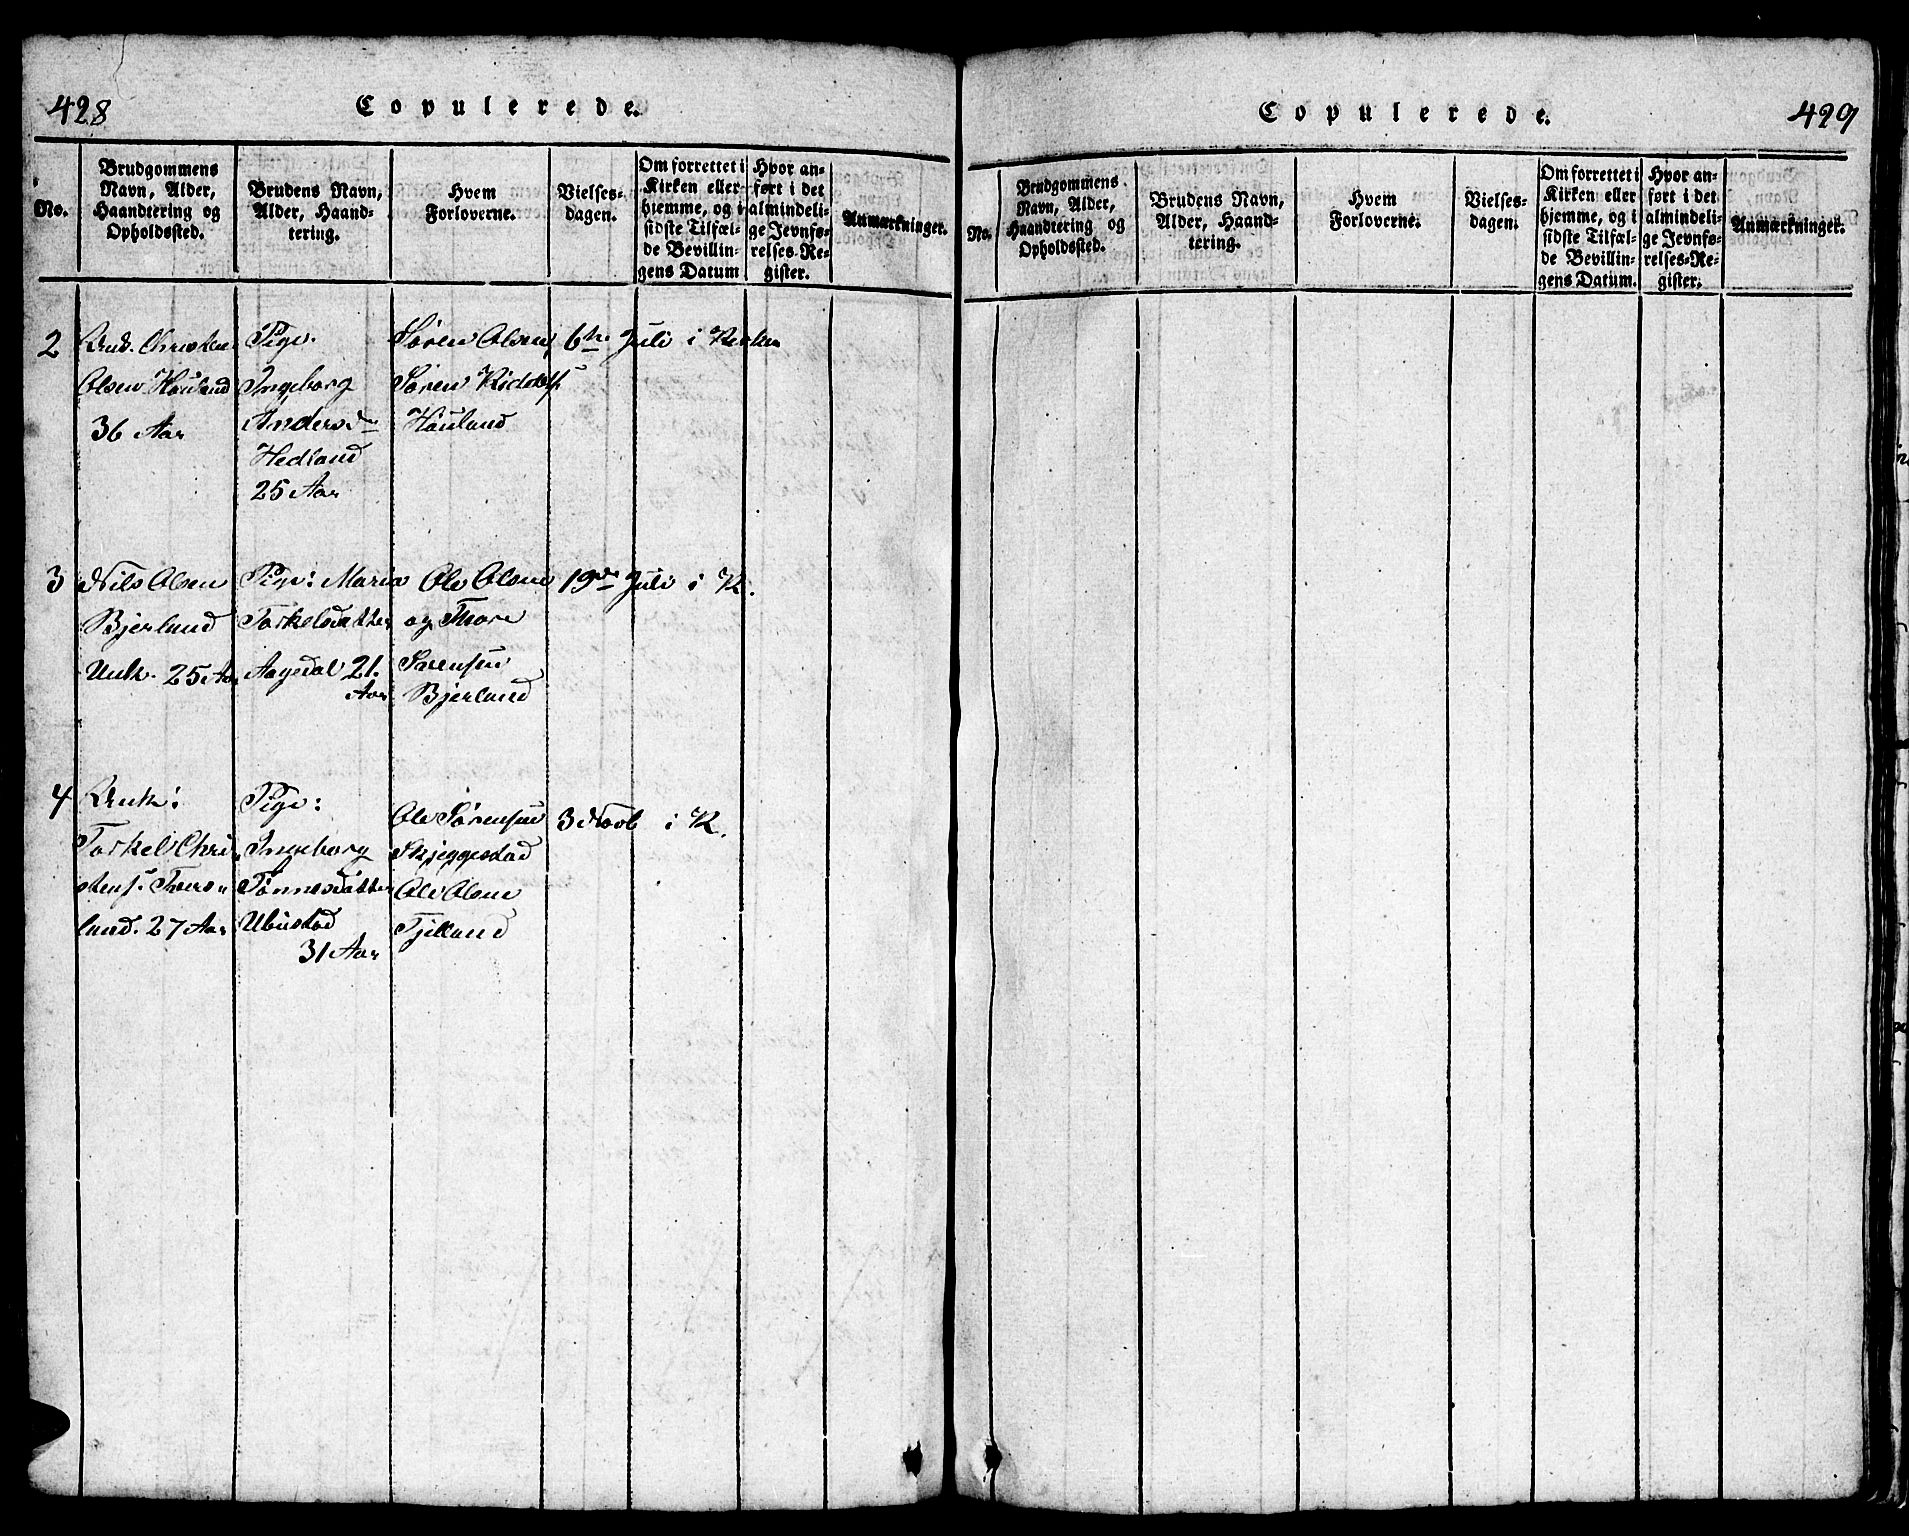 428
Copulerede.
No.
Brudgommens
Navn, Alder,
Haandtering og
Opholdssted.
Brudens Navn,
Alder, Haand-
tering.
Hvem
Forloverne.
Vielses-
dagen.
Om forrettet i
Kirken eller
hjemme, og i
sidste Tilfæl-
de Bevillin-
gens Datum
Hvor an-
ført i det
almindeli-
ge Jevnfø-
relses-Re-
gister.
Anmærkninger.
2
Christen
Olsen Houland
36 Aar
Pige.
Ingeborg
Andersd
Hedland
25 Aar
Søren Olsen,
Søren
Houland
6te Juli i Kirken
3
Nils Olsen
Bjerland
Unk. 25 Aar
Pige: Maria
Torkelsdatter
Aagedal 21.
Aar
Ole Olsen
og Thore
Sørensen
Bjerland
19de Juli i K.
4
Unk:
Torkel Chri
stens.
land. 27 Aar
Pige:
Ingeborg
Tønnesdatter
Ubostad
31 Aar
Ole Sørensen
Skjeggestad
Ole Olsen
Tjelland
3 Novb i K.
Copulerede.
429
No.
Brudgommens
Navn, Alder,
Haandtering og
Opholdssted.
Brudens Navn,
Alder, Haand-
tering.
Hvem
Forloverne.
Vielses-
dagen.
Om forrettet i
Kirken eller
hjemme, og i
sidste Tilfæl-
de Bevillin-
gens Datum.
Hvor an-
ført i det
almindeli-
ge Jevnfø-
relses-Re-
gister.
Anmærkninger.